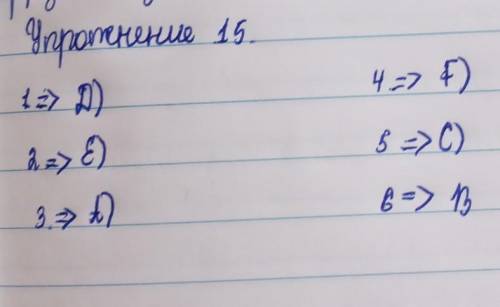 Упрожнение 15.
1 => D)
2 => E)
3. => A)
4 => F)
5 => C)
6 => B